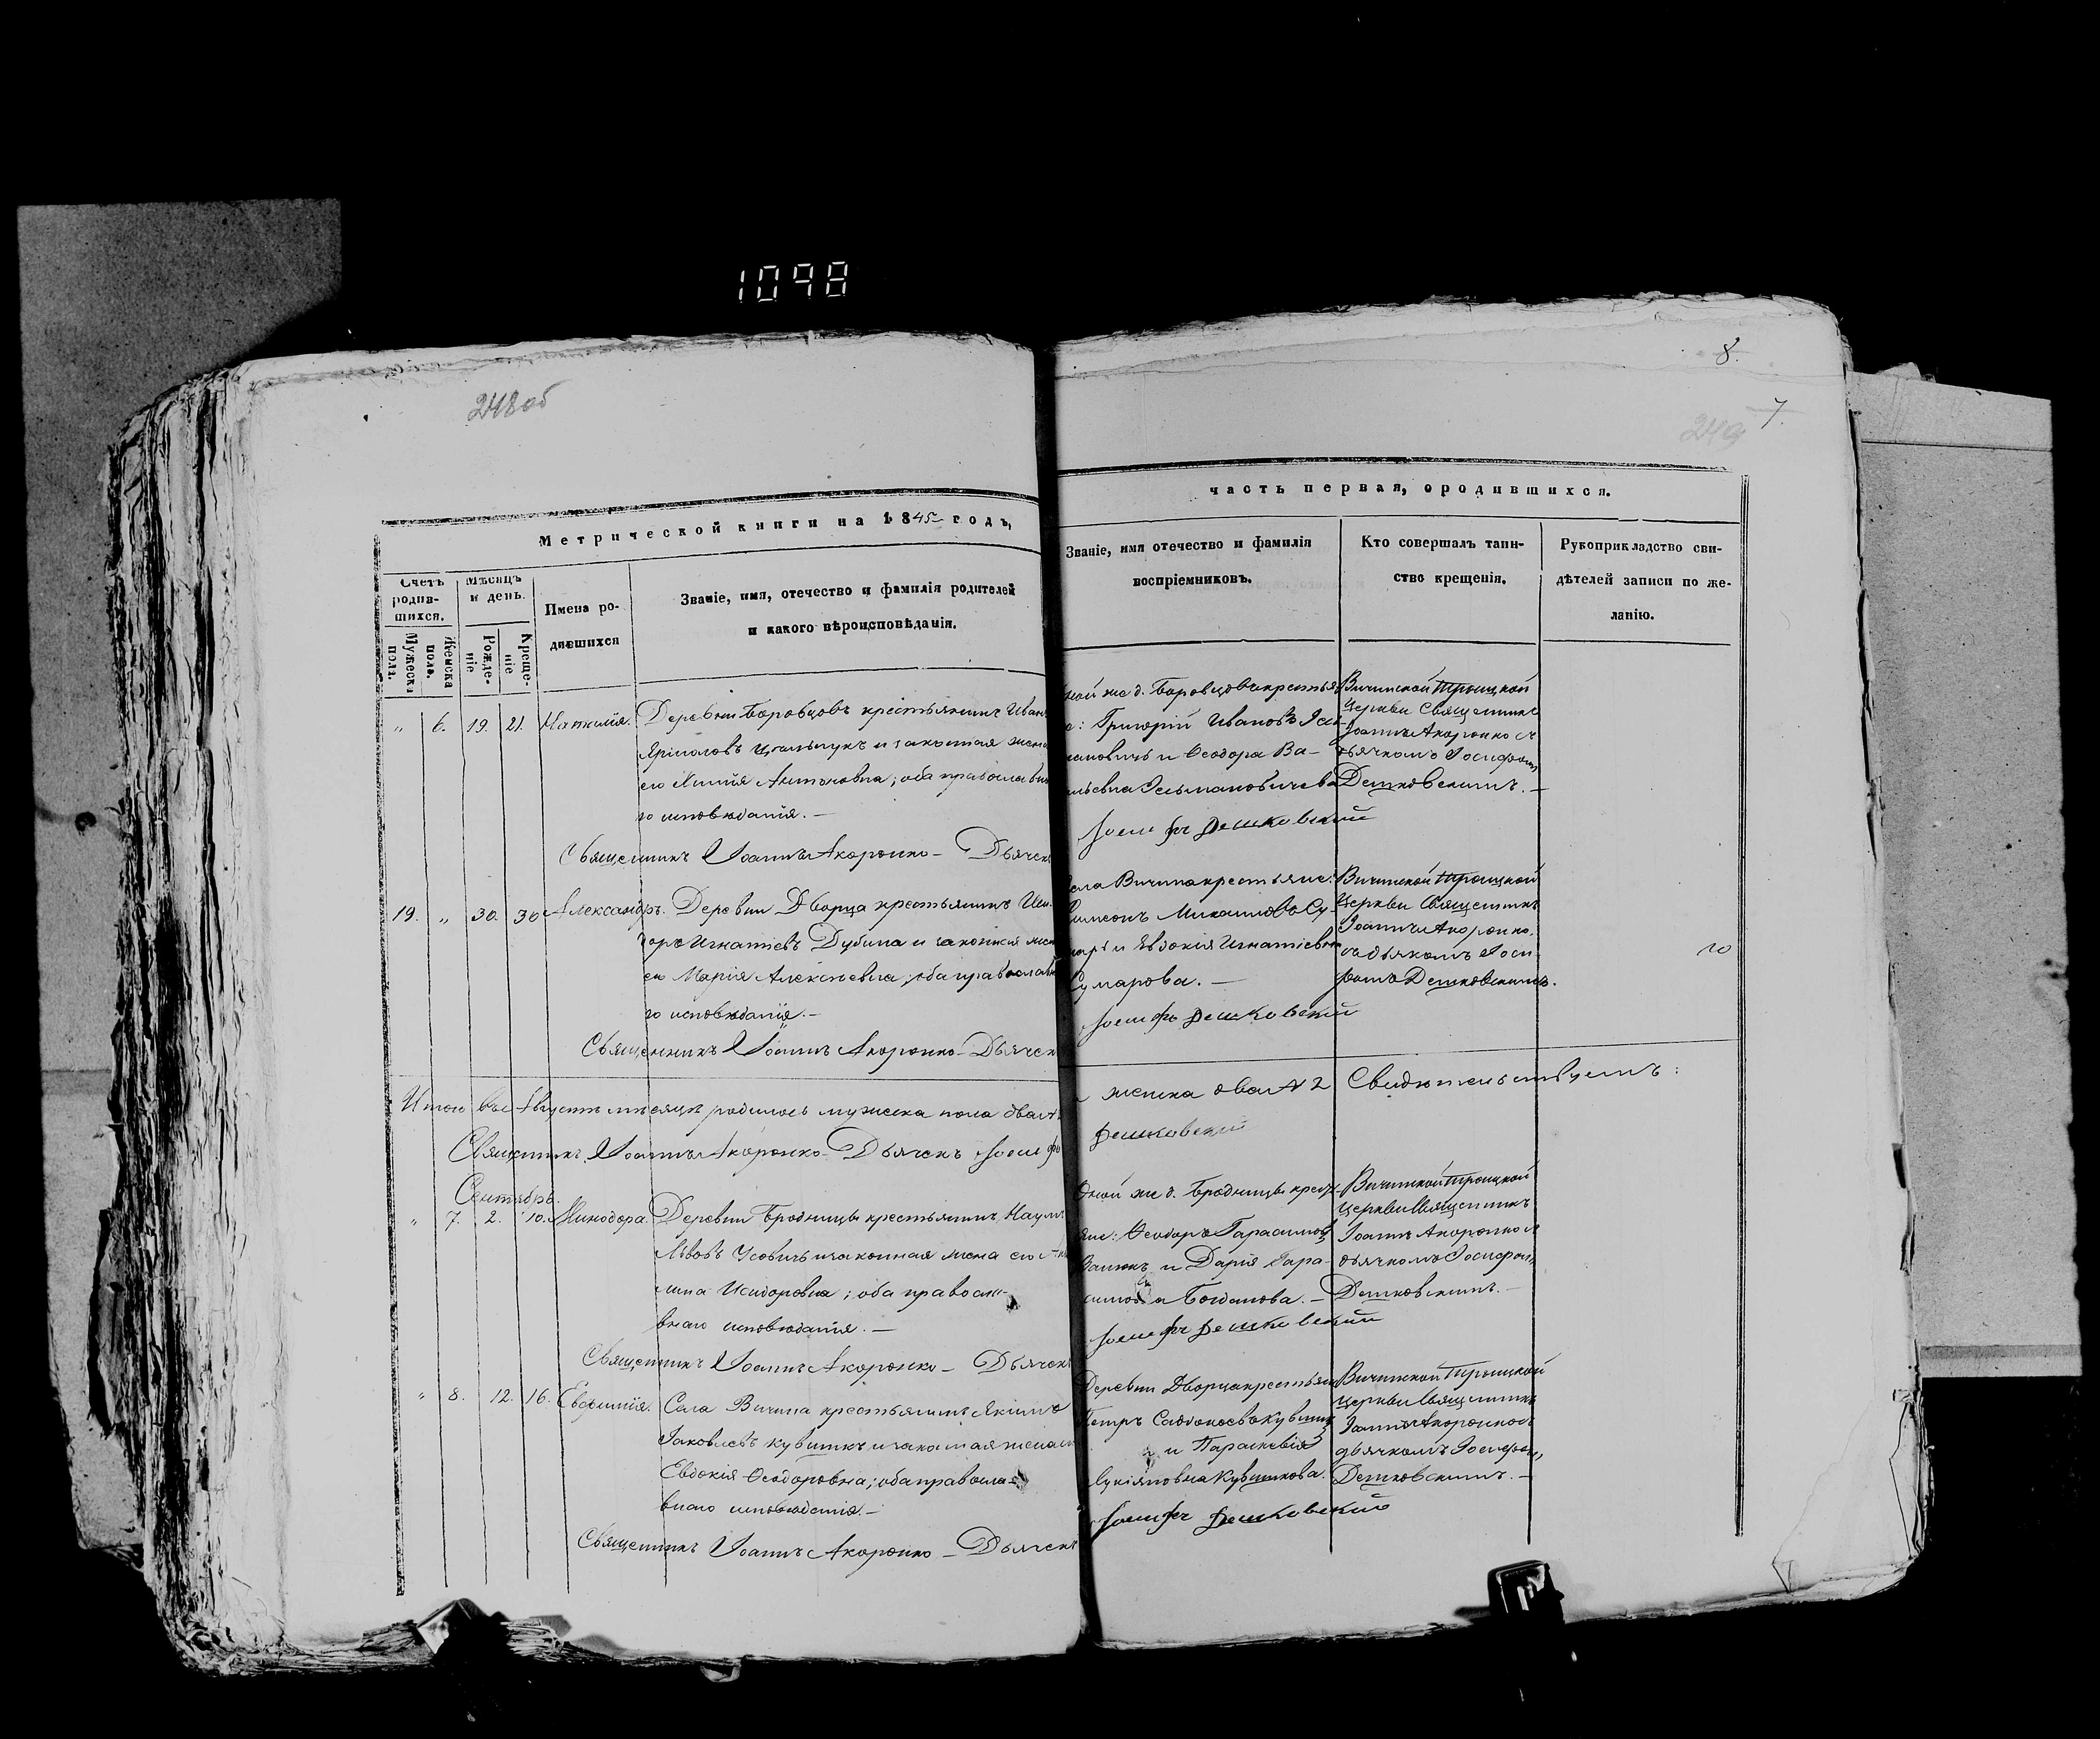 1098
248об
8.
249 7.
Метрической книги на 1845 годъ,
Счетъ родив-шихся.
Мужеска пола.
Женска пола.
Мѣсяцъ и день.
Рожде-ніе
Креще-ніе
Имена ро-
дившихся
Званіе, имя, отечество и фамилія родителей
и какого вѣроисповѣданія.
" 6. 19. 21. Наталія. Деревни Боровцовъ крестьянинъ Иванъ
Ярмоловъ и законная жена
его Антоновна; оба православна
го исповѣданія. —
Священникъ Іоаннъ Акоронко — Дьячекъ
19. " 30. 30 Александръ. Деревни Дворца крестьянинъ Иси-
доръ Игнатіевъ Дубина и законная жена
его Марія Алексѣевна; оба православна
го исповѣданія. —
Священникъ Іоаннъ Акоронко — Дьячекъ
Итого въ Августѣ мѣсяцѣ родилось мужеска пола два
Священникъ Іоаннъ Акоронко — Дьячекъ Іосифъ
Сентябрь.
" 7. 2. 10. Минодора. Деревни Бродницы крестьянинъ Наумъ
Львовъ Усовичъ и законная жена его
Исидоровна; оба правосла-
внаго исповѣданія. —
Священникъ Іоаннъ Акоронко — Дьячекъ
" 8. 12. 16. Евфимія. Села Вичина крестьянинъ Якимъ
Іаковлевъ Кувшикъ и законная жена
Евдокія Ѳеодоровна; оба правосла-
внаго исповѣданія. —
Священникъ Іоаннъ Акоронко — Дьячекъ
часть первая, ородившихся.
Званіе, имя отечество и фамилія
воспріемниковъ.
Кто совершалъ таин-
ство крещенія.
Рукоприкладство сви-
дѣтелей записи по же-
ланію.
ной же д. Боровцовъ крестья
е: Григорій Ивановъ
мановичъ и Ѳеодора Ва-
ильевна
Іосифъ Дешковскій
Вичинской Троицкой
церкви Священникъ
Іоаннъ Акоронко съ
дьячкомъ Іосифомъ
Дешковскимъ. —
села Вичина крестьяне:
Симеонъ Михаиловъ Су-
маръ и Евдокія Игнатіевна
Сумарова. —
Іосифъ Дешковскій
Вичинской Троицкой
Церкви Священникъ
Іоаннъ Акоронко.
съ дьячкомъ Іоси-
фомъ Дешковскимъ.
женска два № 2 Свидѣтельствуемъ:
Дешковскій
дной же д. Бродницы кресть-
яне: Ѳеодоръ Гарасимовъ
и Дарія Гара-
симова Богданова. —
Іосифъ Дешковскій
Вичинской Троицкой
церкви Священникъ
Іоаннъ Акоронко съ
дьячкомъ Іосифомъ
Дешковскимъ. —
Деревни Дворца крестьяне
Петръ Кувшикъ
и Параскевія
Лукіяновна Кувшикова.
Іосифъ Дешковскій
Вичинской Троицкой
церкви Священникъ
Іоаннъ Акоронко съ
дьячкомъ Іосифомъ
Дешковскимъ. —